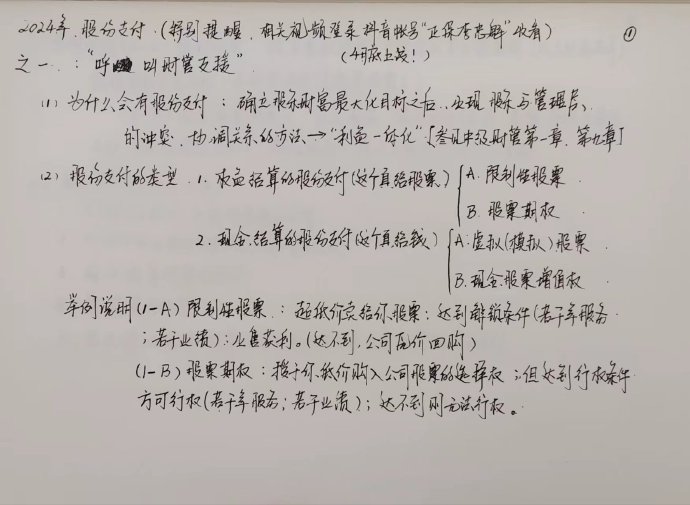 2024年 股份支付 (特别提醒,相关视频登录抖音账号"正保李忠魁"收看) ①
之一:"呼叫财管支援" (4月底上战!)
(1) 为什么会有股份支付:确立股东财富最大化目标之后,出现股东与管理层
的冲突,协调关系的方法→"利益一体化"[参见中级财管第一章、第九章]
(2) 股份支付的类型 1. 权益结算的股份支付(这个真给股票) A. 限制性股票
B. 股票期权
2. 现金结算的股份支付(这个真给钱) A. 虚拟(模拟)股票
B. 现金股票增值权
举例说明 (1-A) 限制性股票:超低价卖给你股票;达到解锁条件(若干年服务
;若干业绩);出售获利。(达不到,公司原价回购)
(1-B) 股票期权:授予你低价购入公司股票的选择权;但达到行权条件
方可行权(若干年服务;若干业绩);达不到则无法行权。